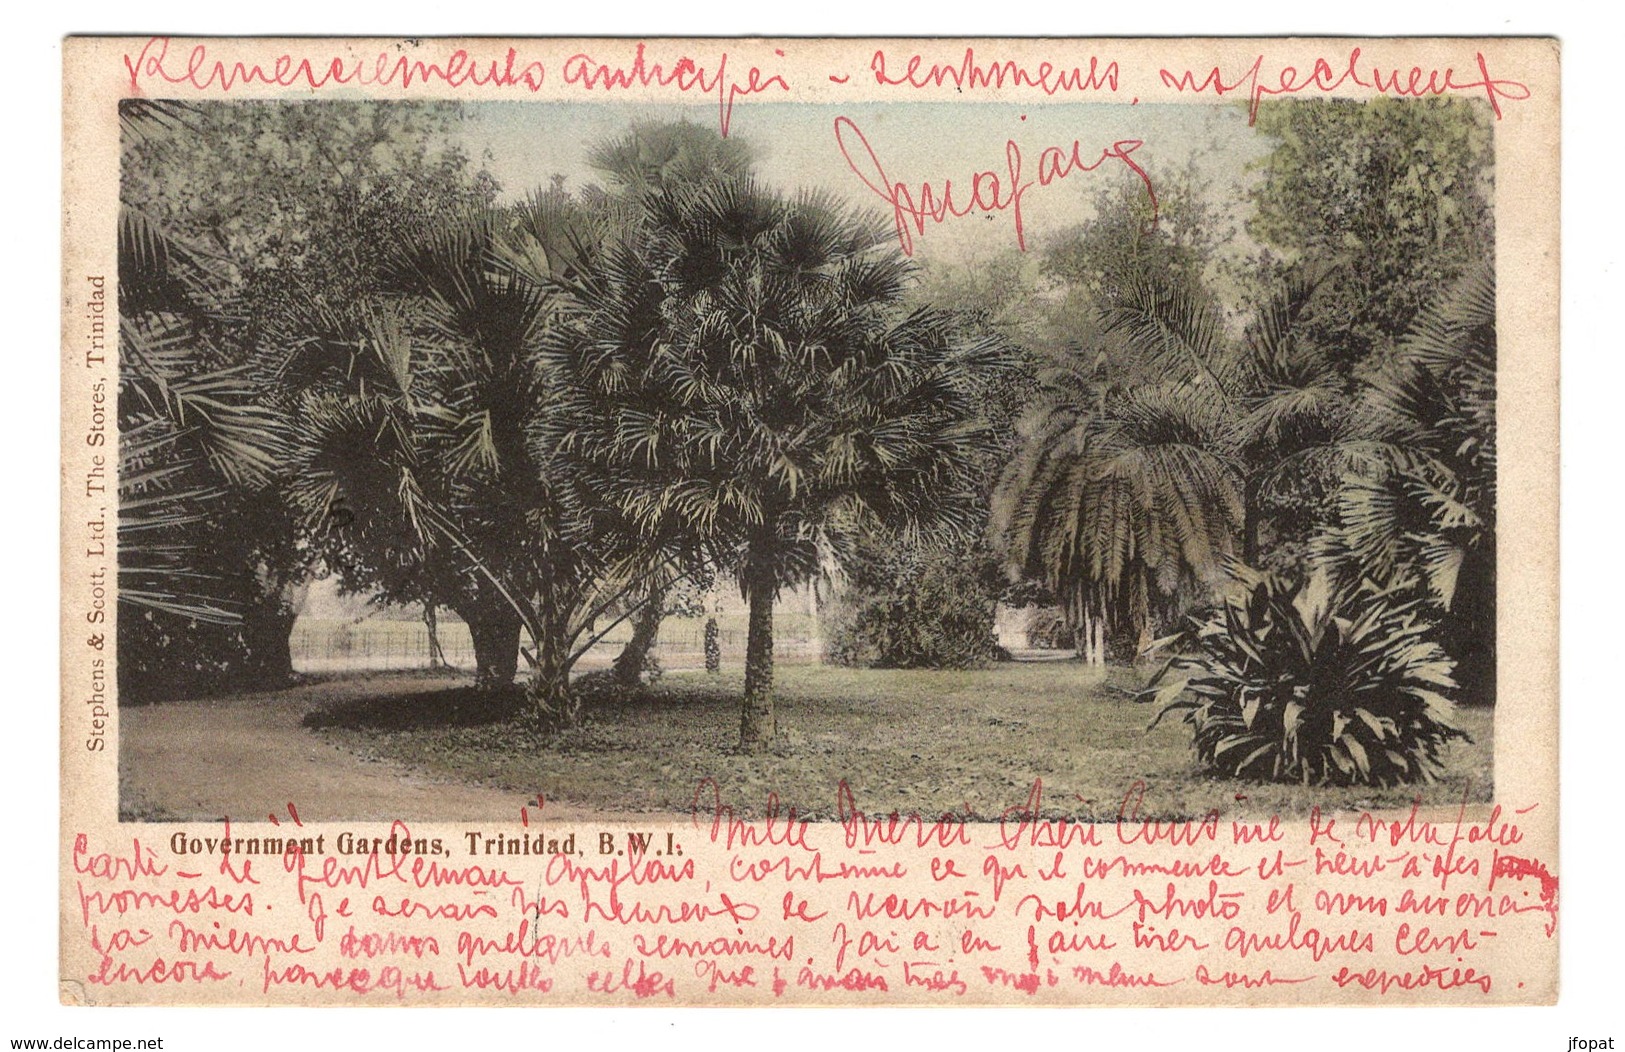 Remerciements anticipés – sentiments respectueux
Stephens & Scott, Ltd., The Stores, Trinidad
Government Gardens, Trinidad, B.W.I.
Mille Merci Chère Cousine de votre jolie
Carte – Le "Gentleman" anglais, continue ce qu'il commence et tient à ses
promesses. Je serais très heureux de recevoir votre photo et vous enverrai
la mienne dans quelques semaines. J'ai à en faire tirer quelques cent
encore, parceque toutes celles que j'avais tirées moi même sont expediées.
www.delcampe.net
jfopat